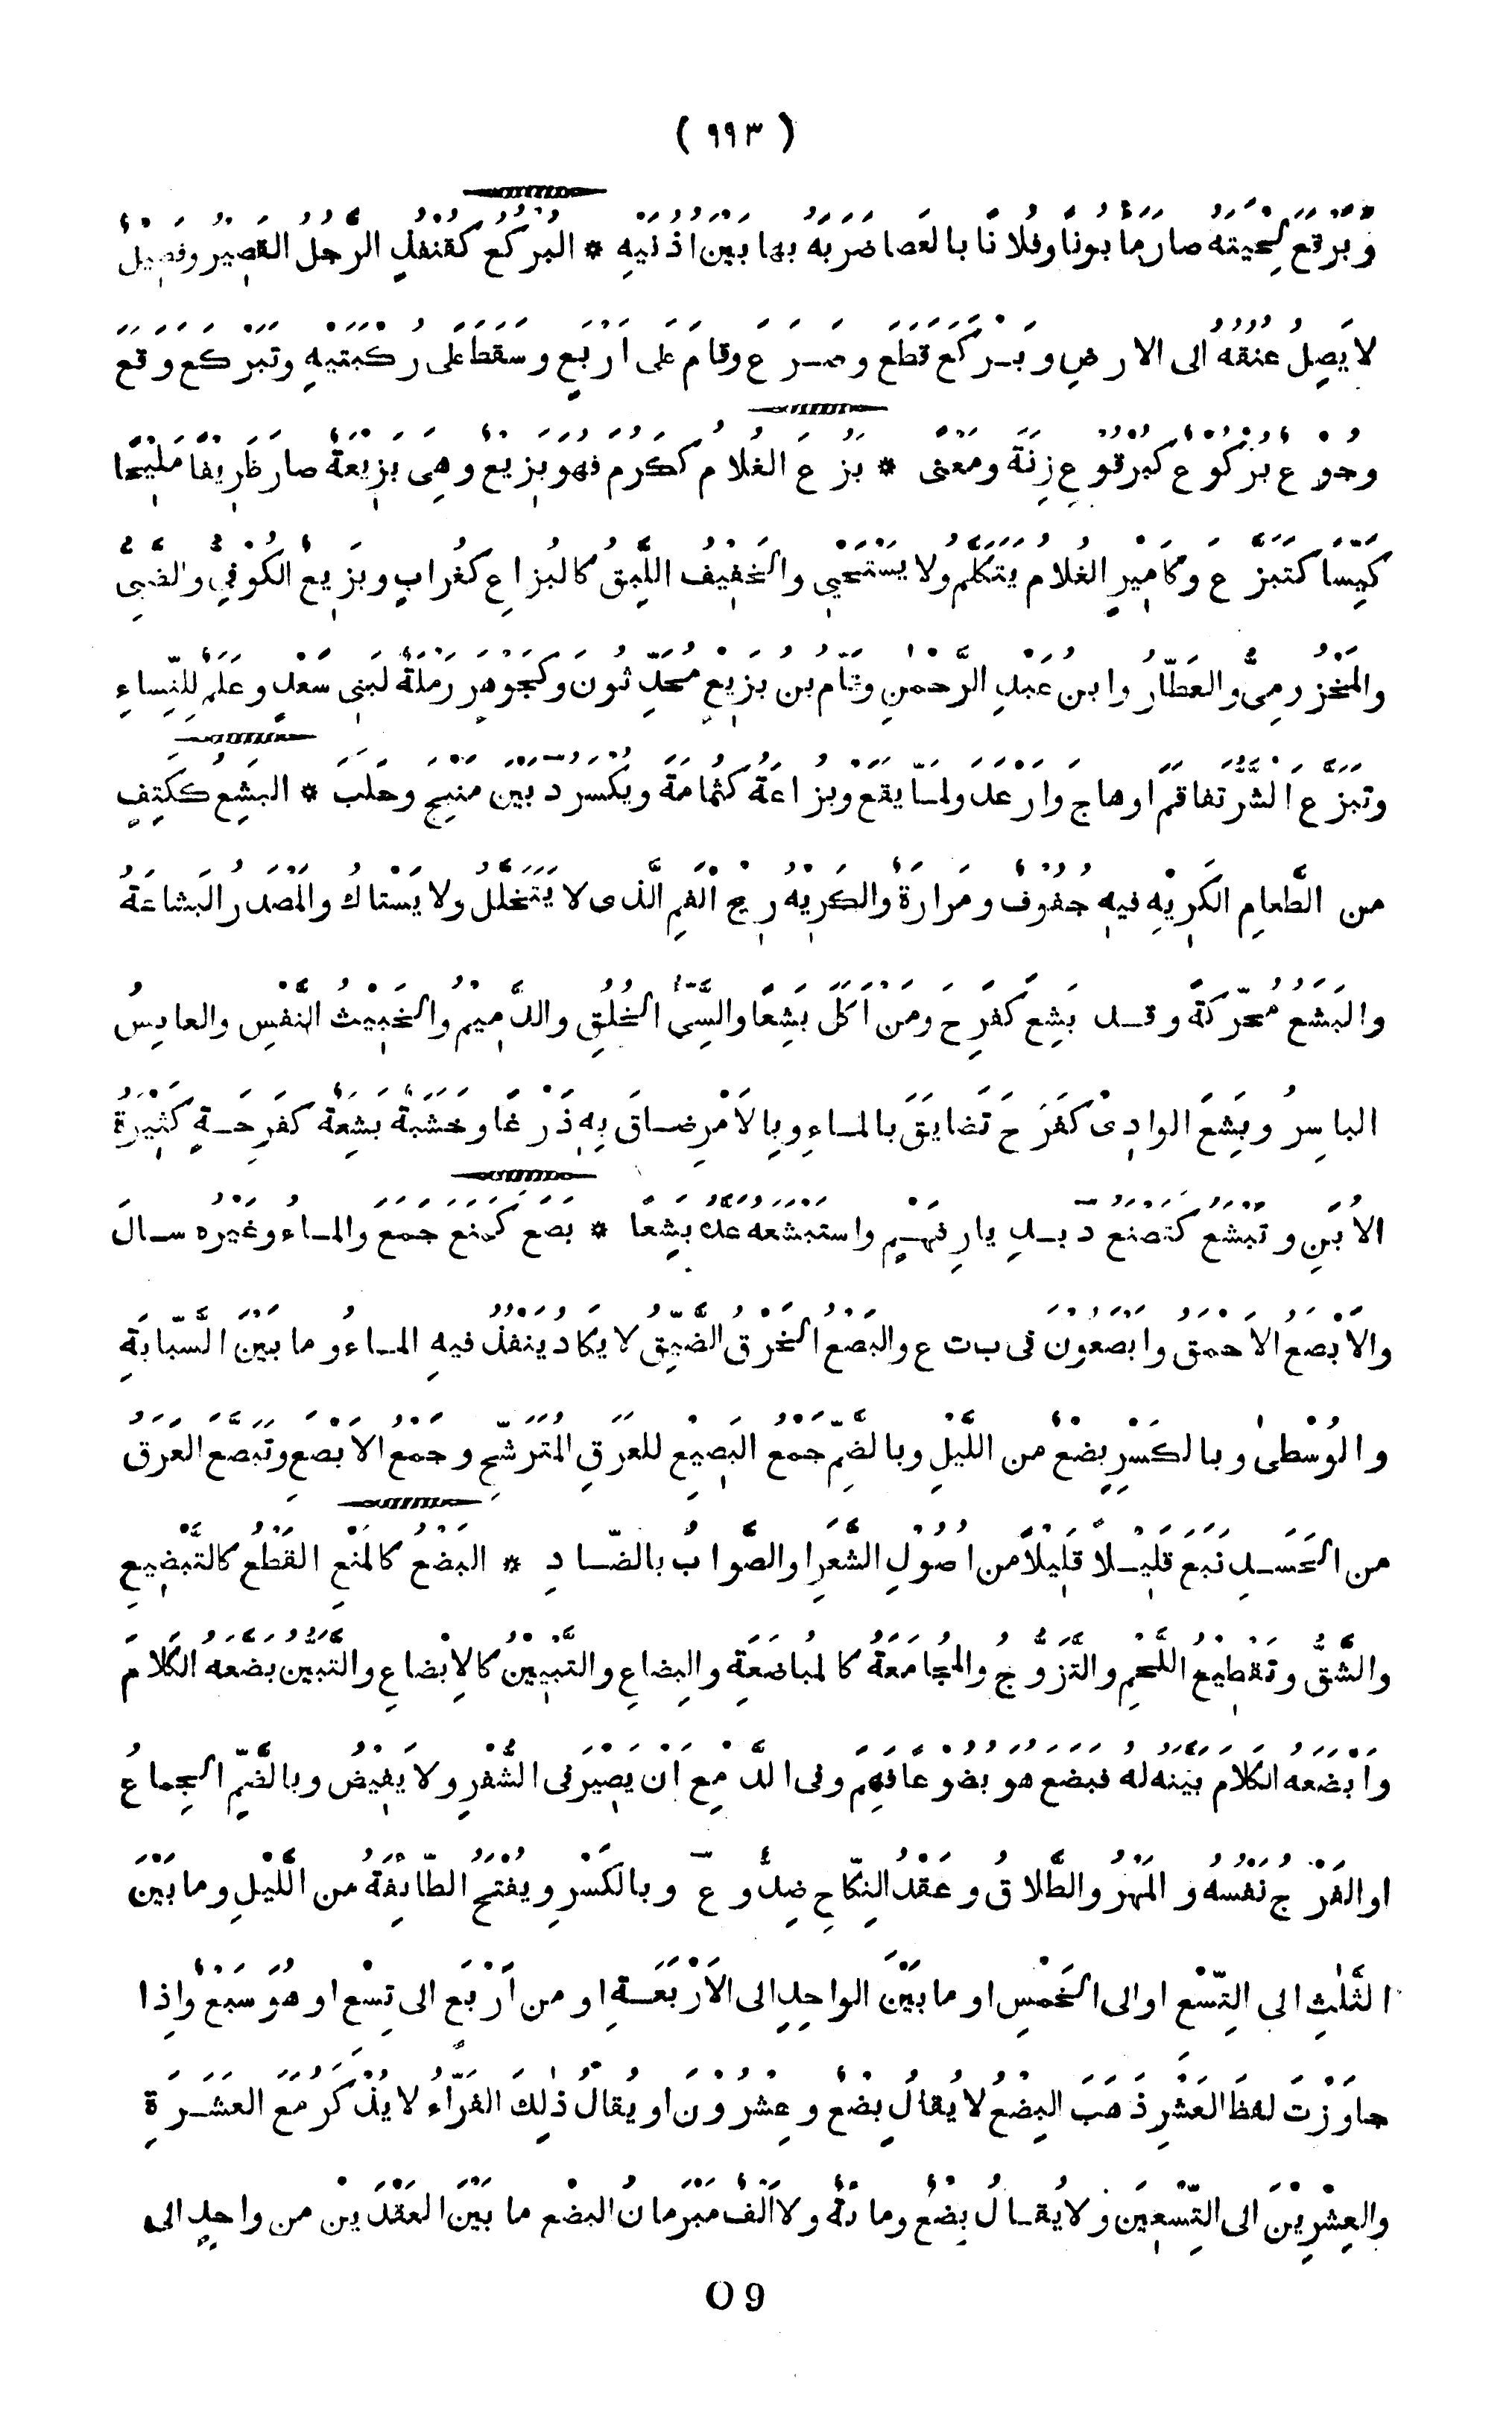 ( ٩٩٣ )
وبَرْقَعَ لِحْيَتَهُ صارَ مابوناً وفُلاناً بالعَصا ضَرَبَهُ بها بينَ اُذُنَيهِ * البُرْكُعُ كقُنْفُذٍ الرَّجُلُ القَصِيْرُ وفَصِيْلٌ
لا يَصِلُ عُنُقُهُ الى الارضِ وبَـرْكَعَ قَطَعَ وصَـرَعَ وقامَ على اَرْبَعٍ وسَقَطَ على رُكْبَتَيهِ وتَبَرْكَعَ وَقَعَ
وجُوْعٌ بُرْكُوْعٌ كبُرْقُوْعٍ زِنَةً ومعنًى * بَزُعَ الغُلامُ ككَرُمَ فهو بَزِيْعٌ وهِى بَزِيْعَةٌ صارَ ظَرِيْفًا مَلِيْحًا
كَيِّسًا كتَبَزَّعَ وكاَمِيْرٍ الغُلامُ يَتَكَلَّمُ ولا يَسْتَحْيِى والخَفِيْفُ اللَّبِقُ كالبُزاعِ كغُرابٍ وبَزِيْعٌ الكُوْفِىُّ والضَّبِّىُّ
والمَخْزُومِىُّ والعَطّارُ وابنُ عَبْدِ الرَّحْمٰنِ وتَمّامُ بنُ بَزِيْعٍ مُحَدِّثُونَ وكجَوْهَرٍ رَمْلَةٌ لبَنِى سَعْدٍ وعَلَمٌ لِلنِّساءِ
وتَبَزَّعَ الشَّرُّ تَفاقَمَ اَوْهاجَ وارْعَدَ ولَمّا يَقَعْ وبُزاعَةُ كثُمامَةَ ويُكْسَرُ د بَيْنَ مَنْبِجَ وحَلَبَ * البَشِعُ ككَتِفٍ
من الطَّعامِ الكَرِيْهِ فيهِ حُفُوفٌ ومَرارَةٌ والكَرِيْهُ رِيْحِ الفَمِ الَّذى لا يَتَخَلَّلُ ولا يَسْتاكُ والمَصْدَرُ البَشاعَةُ
والبَشَعُ مُحَرَّكَةً وقـد بَشِعَ كفَرِحَ ومَنْ اَكَلَ بَشِعًا والسَّيِّئُ الخُلُقِ والدَّمِيْمُ والخَبِيْثُ النَّفْسِ والعابِسُ
الباسِرُ وبَشِعَ الوادِىْ كفَرِحَ تَضايَقَ بالمـاءِ وبِالاَمْرِ ضـاقَ بِهٖ ذَرْعًا وخَشَبَةٌ بَشِعَةٌ كفَرِحَـةٍ كَثِيْرَةُ
الاُبَنِ وتَبْشَعُ كتَصْنَعُ د بـدِيارِ فَهْـمٍ واسْتَبْشَعَهُ عَدَّهُ بَشِعًا * بَصَعَ كمَنَعَ جَمَعَ والمـاءُ وغَيْرُهُ سـالَ
والاَبْصَعُ الاَحْمَقُ واَبْصَعُونَ فى ب ت ع والبَصْعُ الخَرْقُ الضَّيِّقُ لا يَكادُ يَنْفُذُ فيهِ المـاءُ وما بَيْنَ السَّبّابَةِ
والوُسْطٰى وبالكَسْرِ بِضْعٌ من اللَّيْلِ وبالضَمِّ جَمْعُ البَصِيْعِ للعَرَقِ المُتَرَشِّحِ وجَمْعُ الاَبْصَعِ وتَبَصَّعَ العَرَقُ
من الجَسَـدِ نَبَعَ قَلِيْـلاً قَلِيْلاً من اُصُولِ الشَّعَرِ او الصَّوابُ بالضّـادِ * البَضْعُ كالمَنْعِ القَطْعُ كالتَّبْضِيعِ
والشَّقُّ وتَقْطِيْعُ اللَّحْمِ والتَّزَوُّجُ والمُجامَعَةُ كالمُباضَعَةِ والبِضاعِ والتَّبْيِيْنُ كالاِبْضاعِ والتَّبَيُّنُ بَضَعَهُ الكَلامَ
واَبْضَعَهُ الكَلامَ بَيَّنَهُ لَهُ فبَضَعَ هو بُضُوعًا فَهِمَ وفى الدَّمْعِ اَنْ يَصِيْرَ فى الشُّفْرِ ولا يَفِيْضُ وبالضَّمِّ الجِماعُ
او الفَرْجُ نَفْسُهُ و المَهْرُ والطَّلاقُ وعَقْدُ النِّكاحِ ضِدٌّ و ع وبالكَسْرِ ويُفْتَحُ الطّائِفَةُ من اللَّيْلِ وما بَيْنَ
الثَّلٰثِ الى التِّسْعِ او الى الخَمْسِ او ما بَيْنَ الواحِدِ الى الاَرْبَعَـةِ او من اَرْبَعٍ الى تِسْعٍ او هُوَ سَبْعٌ واِذا
جاوَزْتَ لفظَ العَشْرِ ذَهَبَ البِضْعُ لا يُقالُ بِضْعٌ وعِشْرُوْنَ او يُقالُ ذٰلِكَ الفَرّاءُ لا يُذْكَرُ مَعَ العَشَـرَةِ
والعِشْرِيْنَ الى التِّسْعِيْنَ ولا يُقـالُ بِضْعٌ ومائَةٌ ولا اَلْفٌ مَبْرَمانُ البِضْعُ ما بَيْنَ العَقْدَيْنِ من واحِدٍ الى
O 9